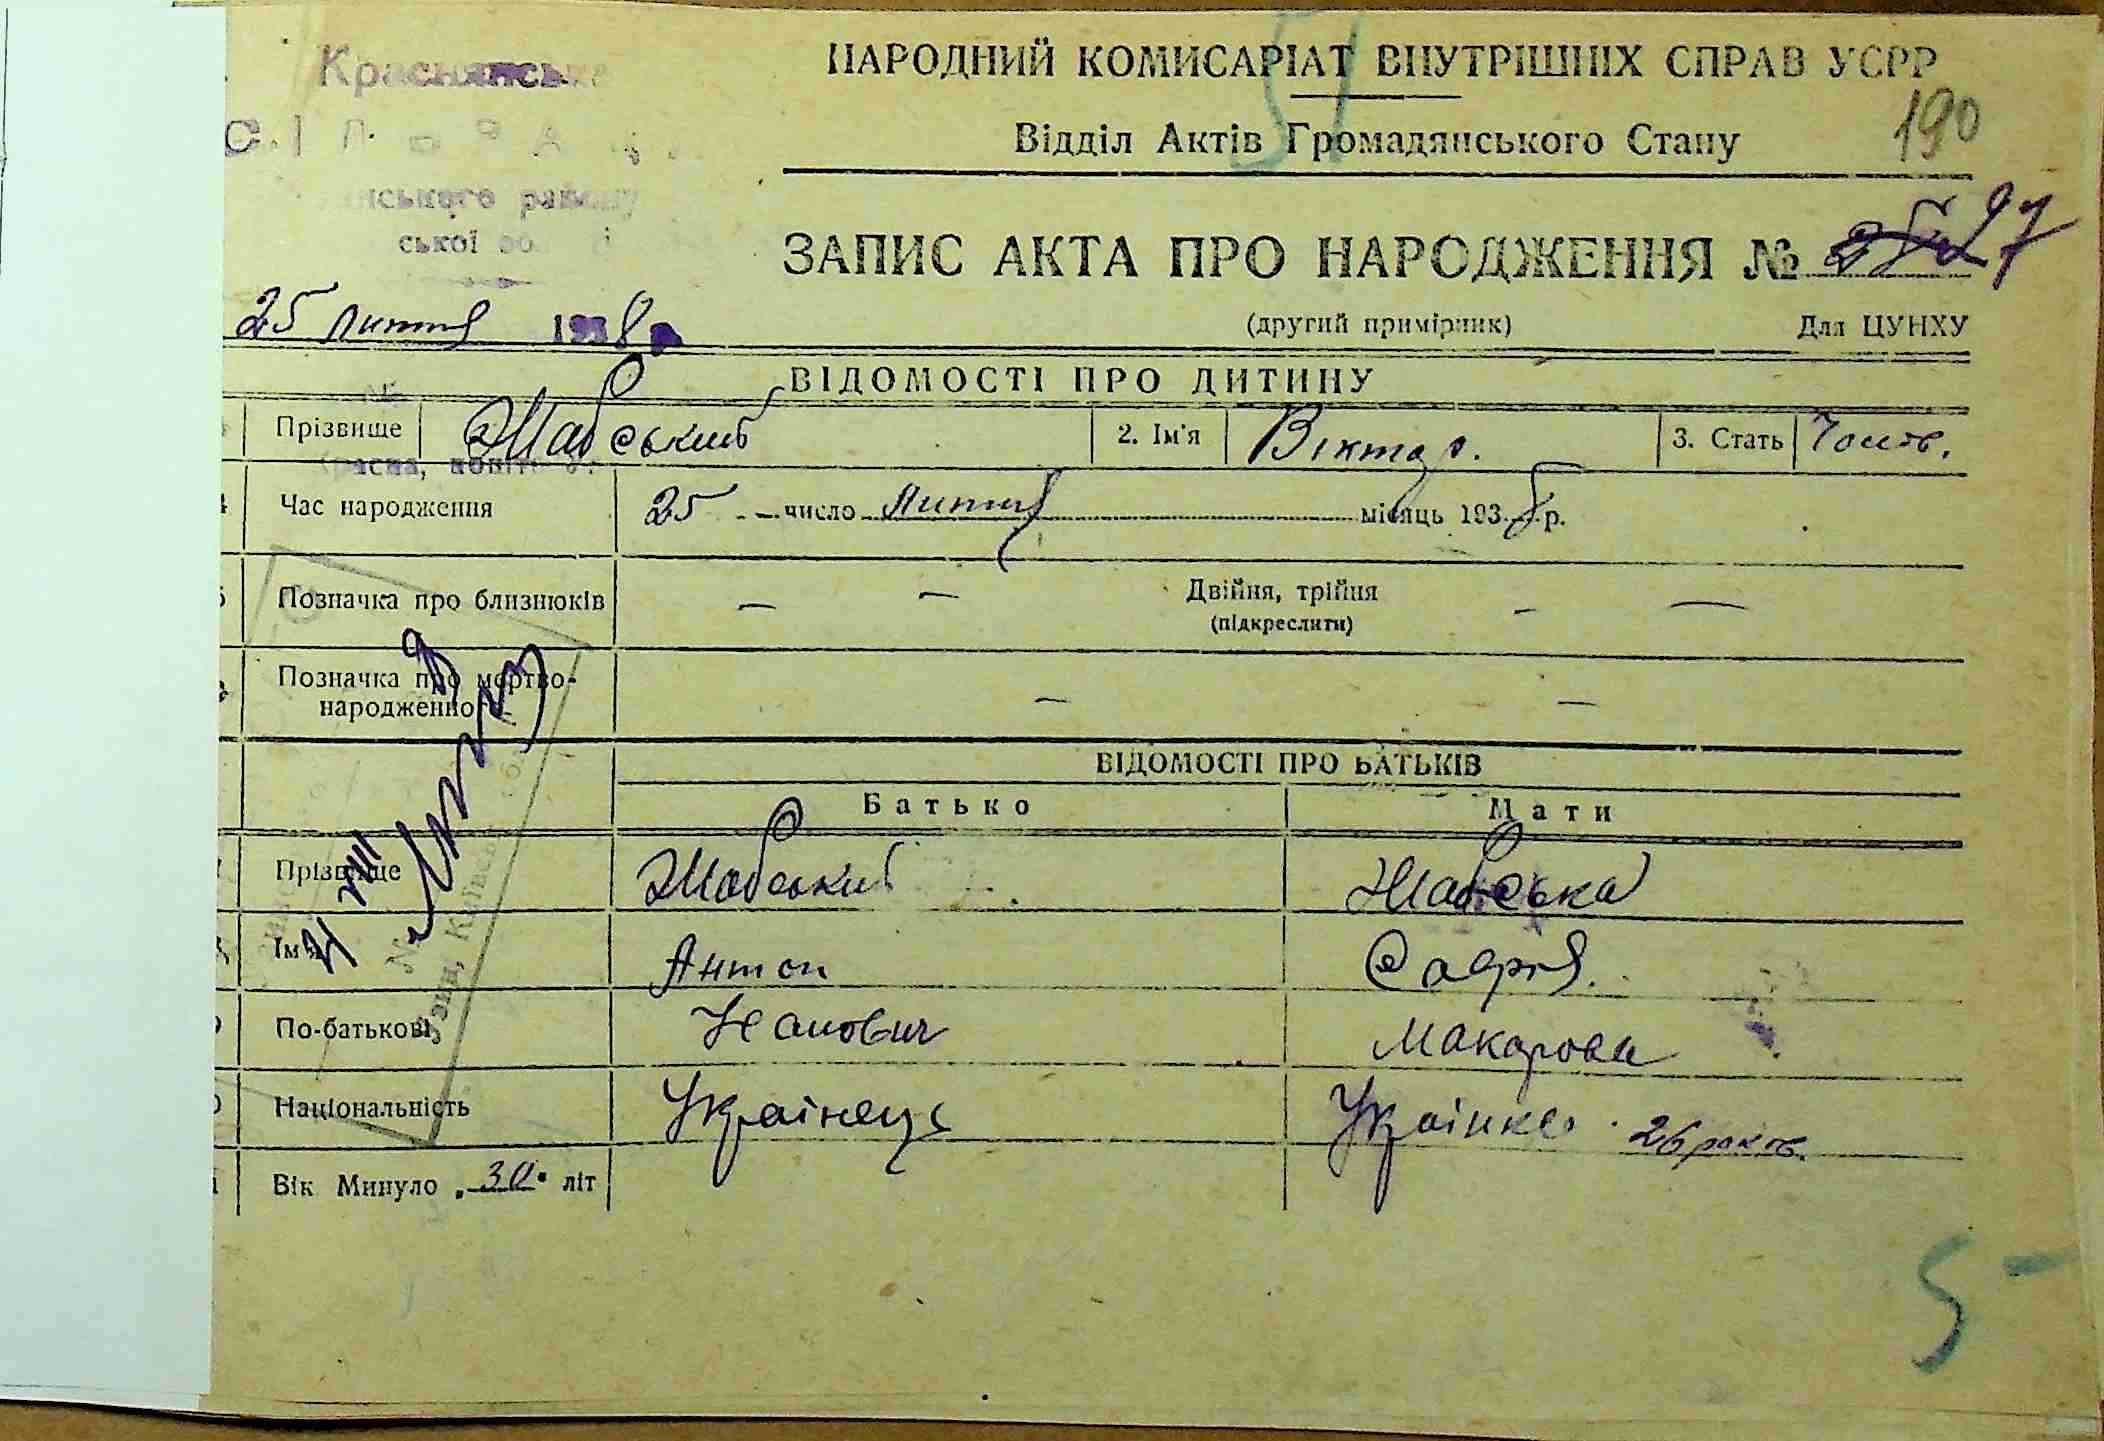 Краснянська
НАРОДНИЙ КОМИСАРІАТ ВНУТРІШНІХ СПРАВ УСРР
51
190
Відділ Актів Громадянського Стану
нського району
ської об
ЗАПИС АКТА ПРО НАРОДЖЕННЯ № 27
25 лютня 1938 р
(другий примірник)
Для ЦУНХУ
ВІДОМОСТІ ПРО ДИТИНУ
Прізвище Жабський 2. Ім'я Віктор. 3. Стать Чолов.
Час народження 25 число лютня місяць 1938 р.
Позначка про близнюків — — Двійня, трійня — —
(підкреслити)
Позначка про мертво-
народженно — —
ВІДОМОСТІ ПРО БАТЬКІВ
Батько Мати
Прізвище Жабський Жабська
Ім'я Антон Софія.
По-батькові Іванович Макаровн
Національність Українець Українка 26 років.
Вік Минуло 30 літ
5